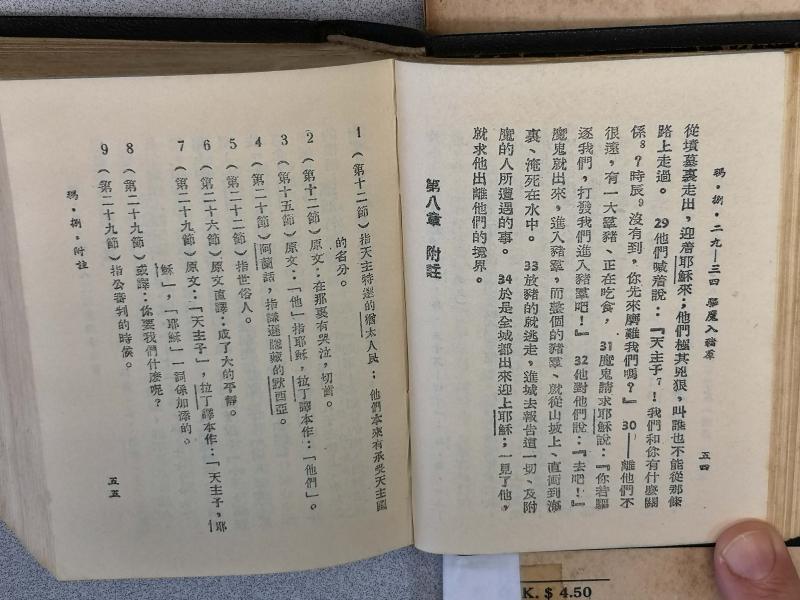 瑪・捌・二九—三四 驅魔入豬羣
五四
從墳墓裏走出，迎着耶穌來；他們極其兇狠，叫誰也不能從那條
路上走過。 29他們喊着說：『天主子7！我們和你有什麼關
係8？時辰9沒有到，你先來磨難我們嗎？』 30——離他們不
很遠，有一大羣豬、正在吃食， 31魔鬼請求耶穌說：『你若驅
逐我們，打發我們進入豬羣吧！』 32他對他們說：『去吧！』
魔鬼就出來，進入豬羣，而整個的豬羣、就從山坡上、直闖到海
裏、淹死在水中。 33放豬的就逃走，進城去報告這一切、及附
魔的人所遭遇的事。 34於是全城都出來迎上耶穌；一見了他，
就求他出離他們的境界。
第八章 附註
1（第十二節）指天主特選的猶太人民；他們本來有承受天主國
的名分。
2（第十二節）原文：在那裏有哭泣，切齒。
3（第十五節）原文：「他」指耶穌，拉丁譯本作：「他們」。
4（第二十節）阿蘭話，指謙遜隱藏的默西亞。
5（第二十二節）指世俗人。
6（第二十六節）原文直譯：成了大的平靜。
7（第二十九節）原文：「天主子」，拉丁譯本作：「天主子，耶
穌」，「耶穌」一詞係加添的。
8（第二十九節）或譯：你要我們什麼呢？
9（第二十九節）指公審判的時候。
瑪・捌・附註
五五
K. $ 4.50